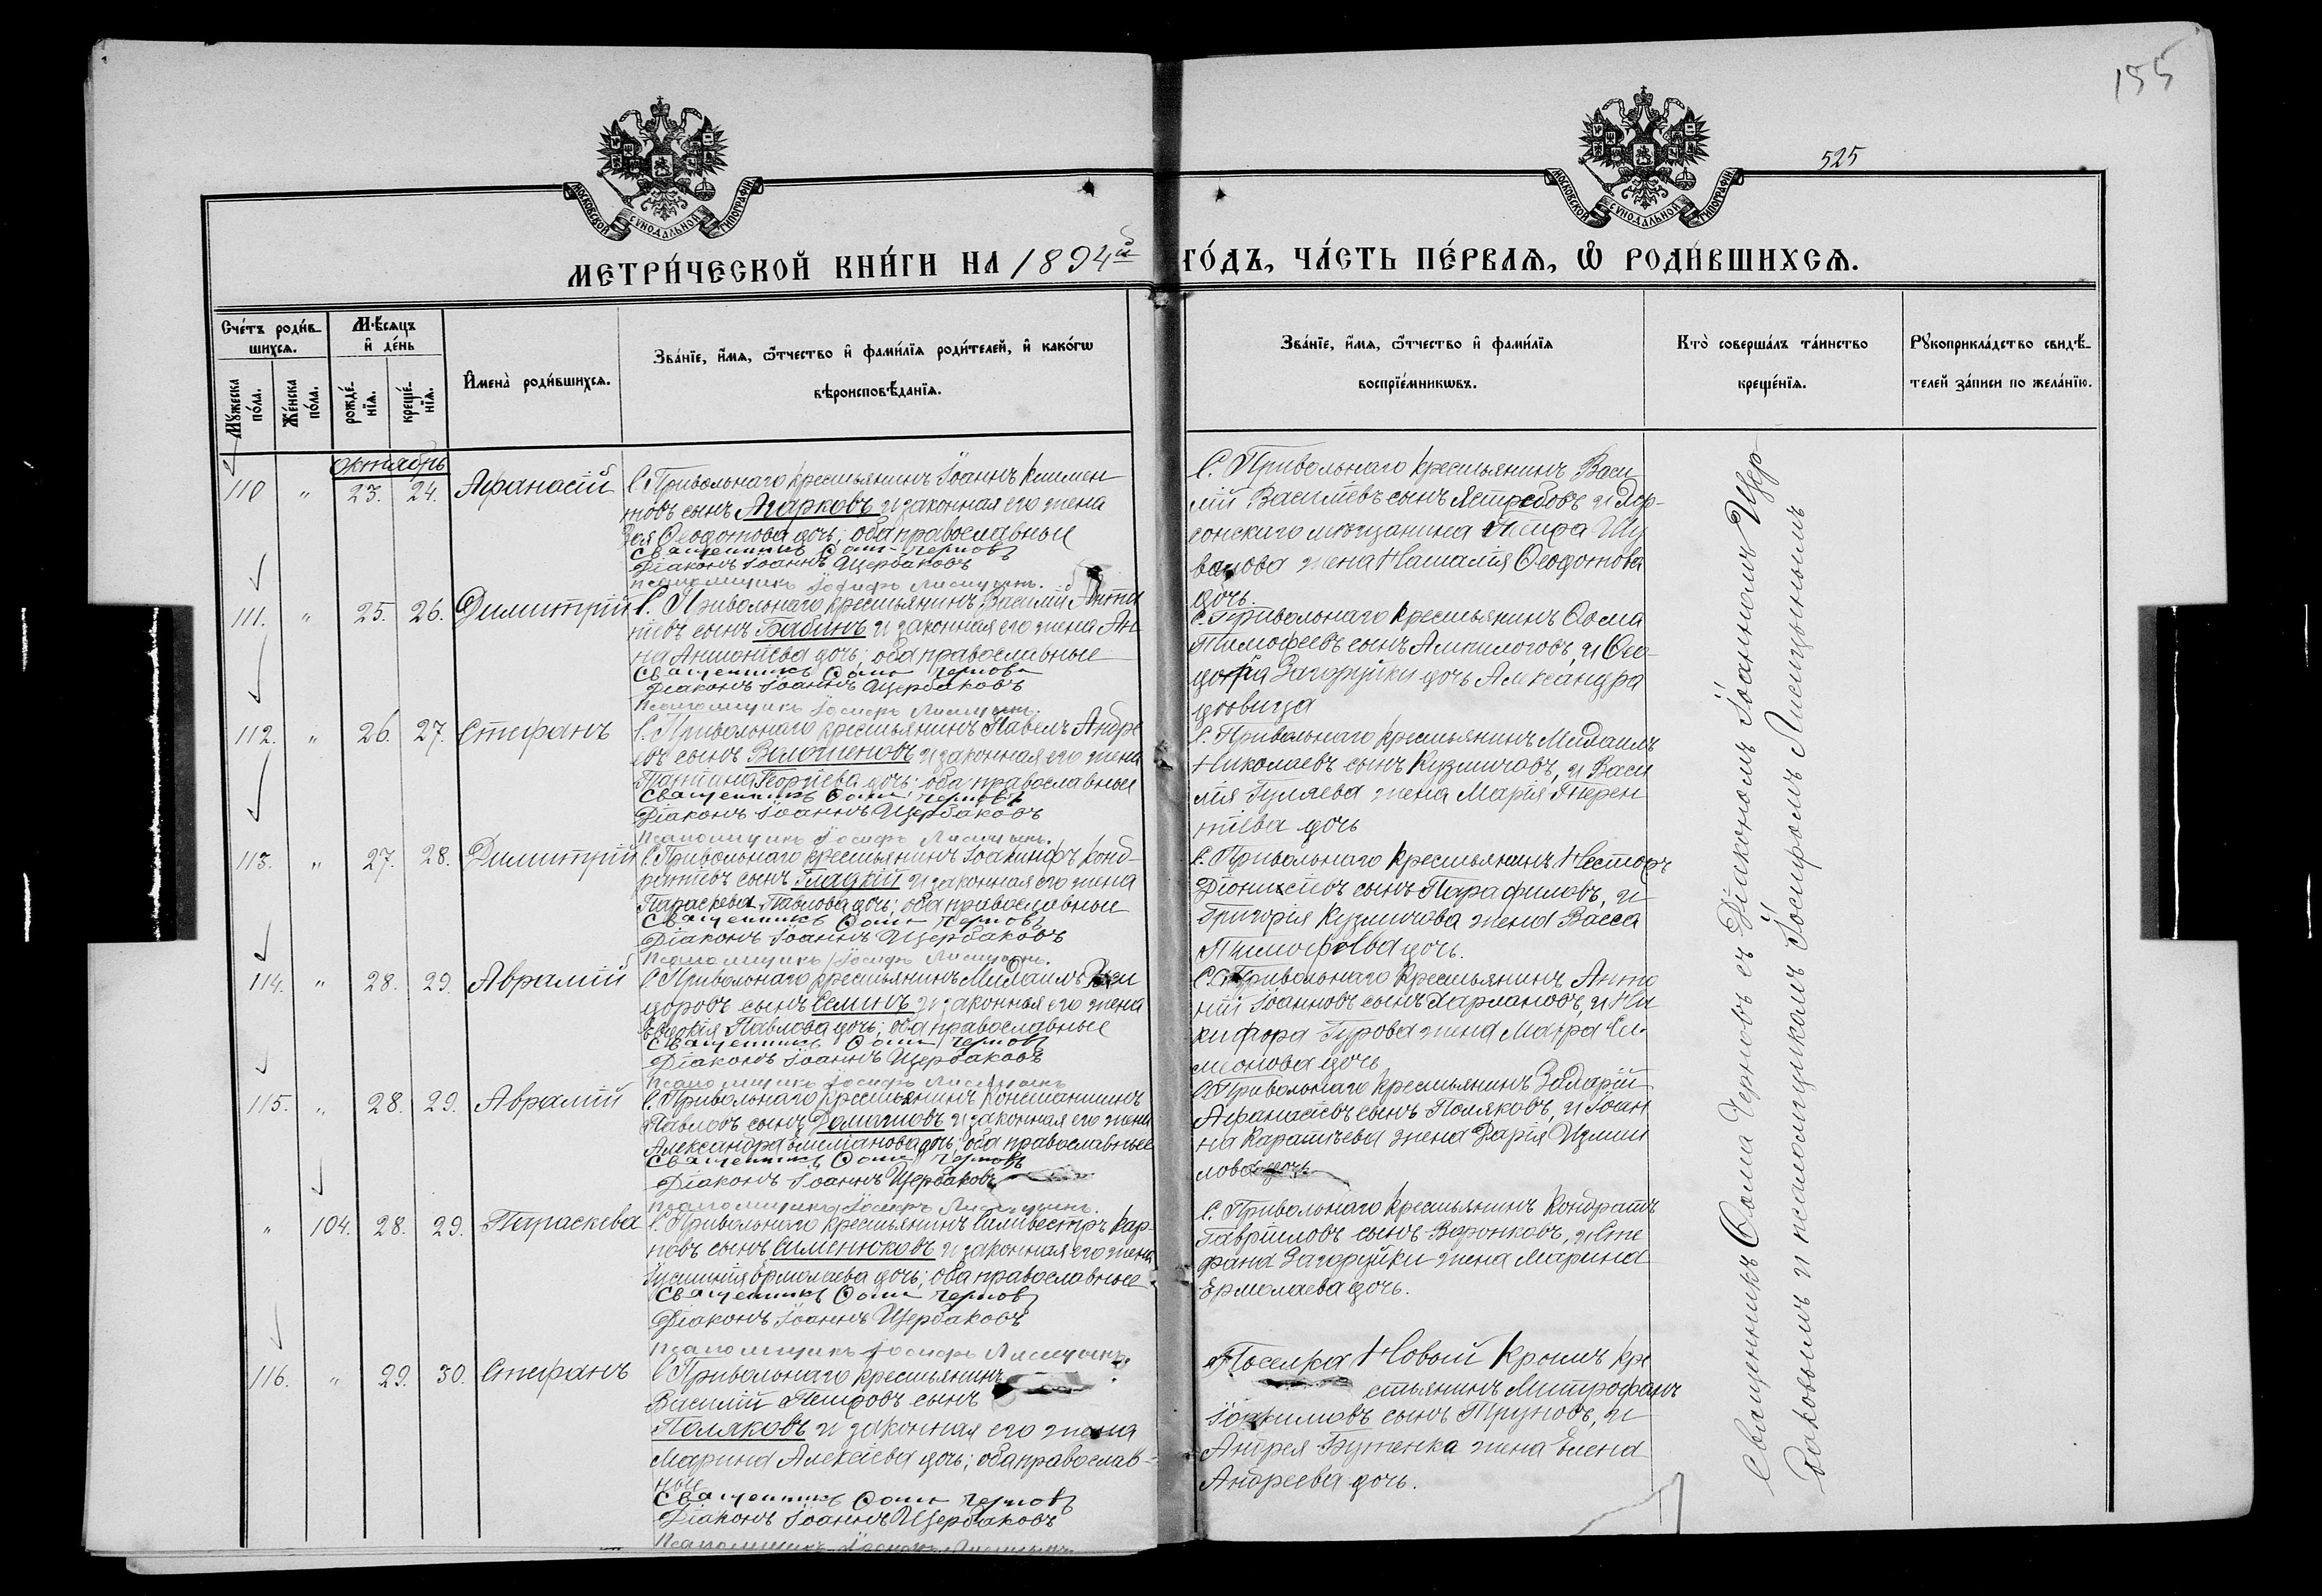 155
525
МОСКОВСКОЙ СѴНОДАЛЬНОЙ ТИПОГРАФІИ
МОСКОВСКОЙ СѴНОДАЛЬНОЙ ТИПОГРАФІИ
МЕТРИ́ЧЕСКОЙ КНИ́ГИ НА 1894й ГО́ДЪ, ЧА́СТЬ ПЕ́РВАЯ, Ѿ РОДИ́ВШИХСЯ.
Сче́тъ роди́в-
шихся.
Мѣ́сяцъ
и де́нь
Му́жеска по́ла.
Же́нска по́ла.
рожде́-
нїя.
креще́-
нїя.
Имена̀ роди́вшихся.
Зва́нїе, и́мя, ѻ́тчество и фами́лїя роди́телей, и како́гѡ
вѣроисповѣ́данїя.
Зва́нїе, и́мя, ѻ́тчество и фами́лїя
воспрїе́мникѡвъ.
Кто̀ соверша́лъ та́инство
креще́нїя.
Рукоприкла́дство свидѣ́-
телей за́писи по жела́нїю.
октябрь
110 " 23. 24. Афанасій
С. Привольнаго крестьянинъ Іоаннъ Климен
товъ сынъ Агарковъ и законная его жена
Зоя Ѳеодотова дочь; оба православные
Священникъ Ѳома Черновъ
Діаконъ Іоаннъ Щербаковъ
псаломщикъ Іосифъ Лисицынъ.
С. Привольнаго крестьянинъ Васи
лій Васильевъ сынъ Ястребовъ и Хер-
сонскаго мѣщанина Петра Шу
валова жена Наталія Ѳеодотова
дочь.
111. " 25. 26. Димитрій
С. Привольнаго крестьянинъ Василій
сынъ Бабинъ и законная его жена Ан
на Антоніева дочь; оба православные
Священникъ Ѳома Черновъ
Діаконъ Іоаннъ Щербаковъ
Псаломщикъ Іосифъ Лисицынъ.
С. Привольнаго крестьянинъ Ѳома
Тимофеевъ сынъ и Ѳео-
Загоруйки дочь Александра
дѣвица
112. " 26. 27. Стефанъ
С. Привольнаго крестьянинъ Павелъ Андре
евъ сынъ и законная его жена
Татіана Георгіева дочь; оба православные
Священникъ Ѳома Черновъ
Діаконъ Іоаннъ Щербаковъ
Псаломщикъ Іосифъ Лисицынъ.
С. Привольнаго крестьянинъ Михаилъ
Николаевъ сынъ Кузмичовъ, и Васи
лія Гуляева жена Марія Терен
тіева дочь
113. " 27. 28. Димитрій
С. Привольнаго крестьянинъ Іоакинфъ Конд-
ратіевъ сынъ Гладкій и законная его жена
Параскева Павлова дочь; оба православные
Священникъ Ѳома Черновъ
Діаконъ Іоаннъ Щербаковъ
Псаломщикъ Іосифъ Лисицынъ.
С. Привольнаго крестьянинъ Несторъ
Діонисіевъ сынъ Парафиловъ, и
Григорія Кузмичова жена Васса
Тимофѣева дочь.
114. " 28. 29. Аврамій
С. Привольнаго крестьянинъ Михаилъ
доровъ сынъ Семинъ и законная его жена
Евдокія Павлова дочь; оба православные
Священникъ Ѳома Черновъ
Діаконъ Іоаннъ Щербаковъ
Псаломщикъ Іосифъ Лисицынъ
С. Привольнаго крестьянинъ Анто
ній Іоанновъ сынъ Харламовъ, и Ни
кифора Гурова жена Мавра Си-
меонова дочь
115. " 28. 29. Аврамій
С. Привольнаго крестьянинъ Константинъ
Павловъ сынъ и законная его жена
Александра Емеліанова дочь; оба православные
Священникъ Ѳома Черновъ
Діаконъ Іоаннъ Щербаковъ
псаломщикъ Іосифъ Лисицынъ.
С. Привольнаго крестьянинъ Захарій
Афанасіевъ сынъ Поляковъ, и Іоан
на жена Дарія Измаи
лова дочь
" 104. 28. 29. Параскева
С. Привольнаго крестьянинъ Силивестръ Кар-
повъ сынъ Сименюковъ и законная его жена
Іустинія Ермолаева дочь; оба православные
Священникъ Ѳома Черновъ
Діаконъ Іоаннъ Щербаковъ
Псаломщикъ Іосифъ Лисицынъ.
С. Привольнаго крестьянинъ Кондратъ
Гавріиловъ сынъ Воронковъ, и Сте
фана Загоруйки жена Марина
Ермолаева дочь.
116. " 29. 30. Стефанъ
С. Привольнаго крестьянинъ
Василій Петровъ сынъ
Поляковъ и законная его жена
Марина Алексіева дочь; оба православ-
ные
Священникъ Ѳома Черновъ
Діаконъ Іоаннъ Щербаковъ
Псаломщикъ Іосифъ Лисицынъ
Поселка Новый Кроимъ кре
стьянинъ Митрофанъ
Іоакимовъ сынъ Труновъ, и
Андрея Бутенка жена Елена
Андреева дочь.
Священникъ Ѳома Черновъ съ Діакономъ Іоанномъ Щер
баковымъ и псаломщикомъ Іосифомъ Лисицынымъ